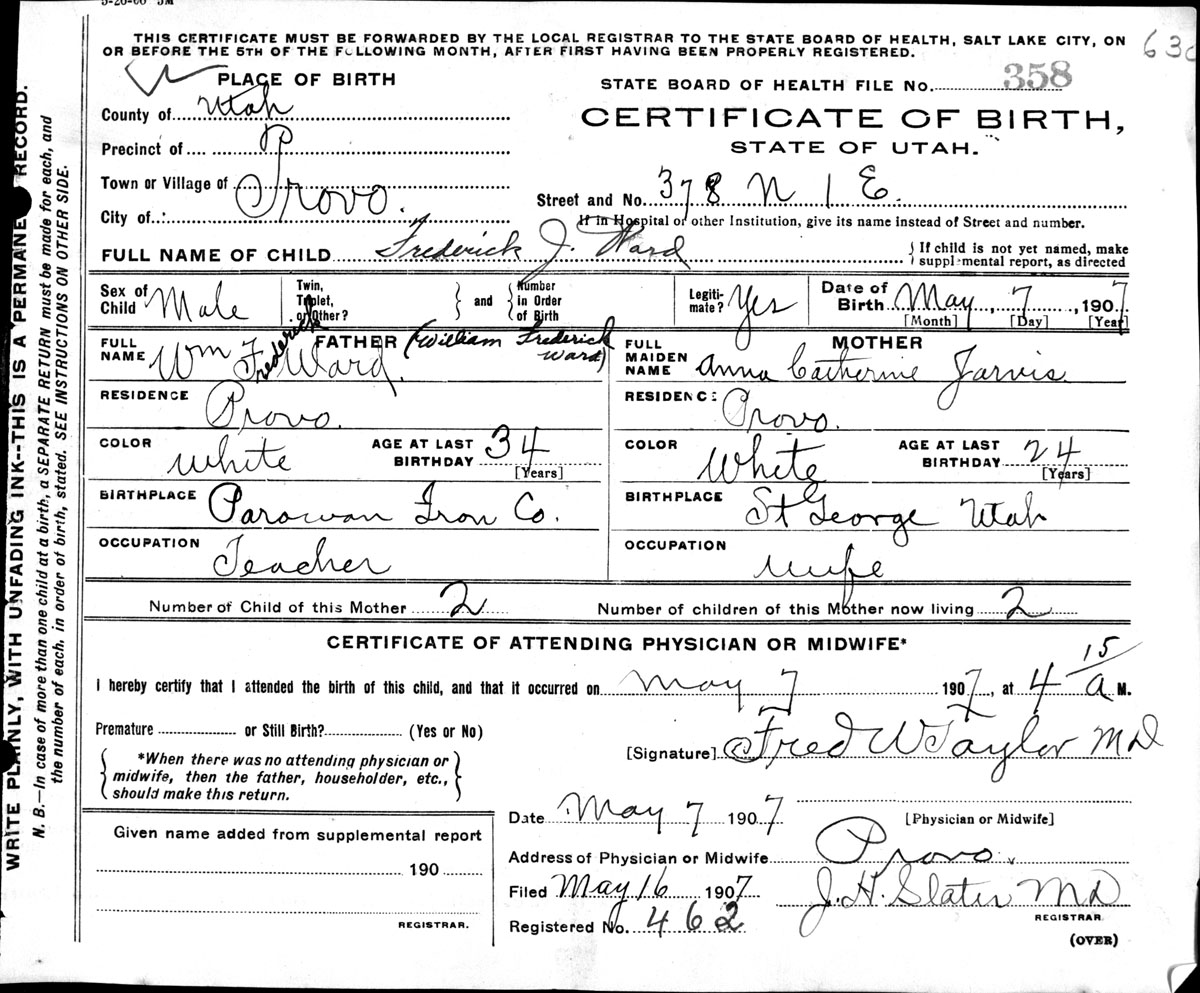 5-26-06 5M
THIS CERTIFICATE MUST BE FORWARDED BY THE LOCAL REGISTRAR TO THE STATE BOARD OF HEALTH, SALT LAKE CITY, ON
OR BEFORE THE 5TH OF THE FOLLOWING MONTH, AFTER FIRST HAVING BEEN PROPERLY REGISTERED.
PLACE OF BIRTH
STATE BOARD OF HEALTH FILE No. 358
County of Utah
CERTIFICATE OF BIRTH,
STATE OF UTAH.
Precinct of P
Town or Village of
City of Provo.
Street and No. 378 N 1 E.
If in Hospital or other Institution, give its name instead of Street and number.
FULL NAME OF CHILD Frederick J. Ward
If child is not yet named, make
supplemental report, as directed
Sex of Child Male
Twin, Triplet, or Other? and Number in Order of Birth
Legitimate? Yes
Date of Birth May, 7, 1907
[Month] [Day] [Year]
FATHER
FULL NAME Wm F. Ward. Frederick (William Frederick Ward)
MOTHER
FULL MAIDEN NAME Anna Catherine Jarvis
RESIDENCE Provo.
RESIDENCE Provo.
COLOR White
AGE AT LAST BIRTHDAY 34 [Years]
COLOR White
AGE AT LAST BIRTHDAY 24 [Years]
BIRTHPLACE Parowan Iron Co.
BIRTHPLACE St George Utah
OCCUPATION Teacher
OCCUPATION Wife
Number of Child of this Mother 2
Number of children of this Mother now living 2
CERTIFICATE OF ATTENDING PHYSICIAN OR MIDWIFE*
I hereby certify that I attended the birth of this child, and that it occurred on May 7 1907, at 4 15 A M.
Premature or Still Birth? (Yes or No)
[Signature] Fred W Taylor MD
*When there was no attending physician or
midwife, then the father, householder, etc.,
should make this return.
[Physician or Midwife]
Date May 7 1907
Given name added from supplemental report
190
REGISTRAR.
Address of Physician or Midwife Provo.
Filed May 16 1907
J. H. Slater MD
REGISTRAR
Registered No. 462
(OVER)
WRITE PLAINLY, WITH UNFADING INK--THIS IS A PERMANE RECORD.
N. B.—In case of more than one child at a birth, a SEPARATE RETURN must be made for each, and
the number of each, in order of birth, stated. SEE INSTRUCTIONS ON OTHER SIDE.